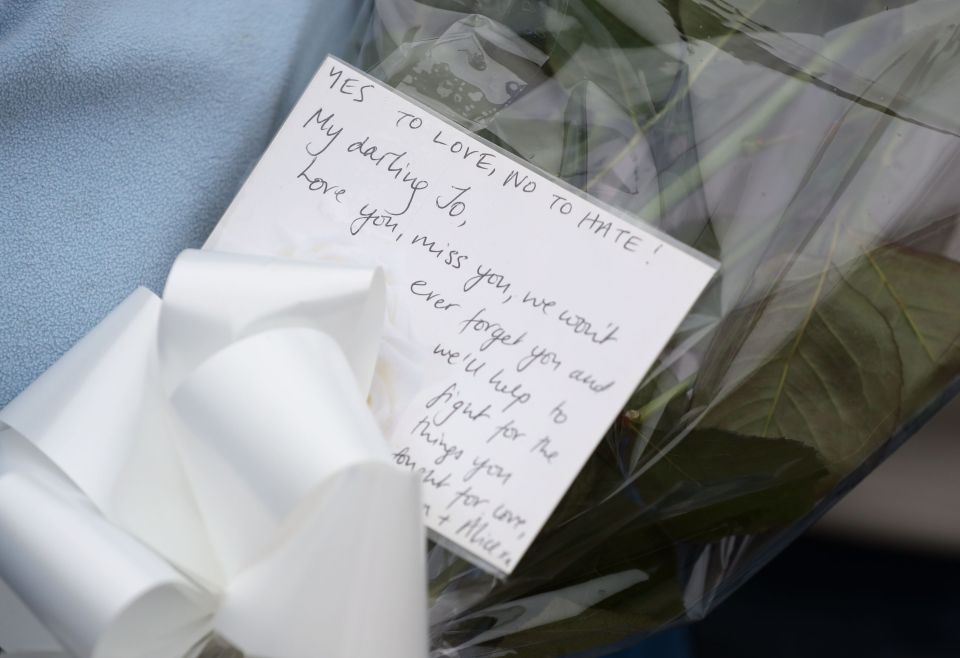 YES TO LOVE, NO TO HATE!
My darling Jo,
Love you, miss you, we won't
ever forget you and
we'll help to
fight for the
things you
fought for love,
+ Alice x